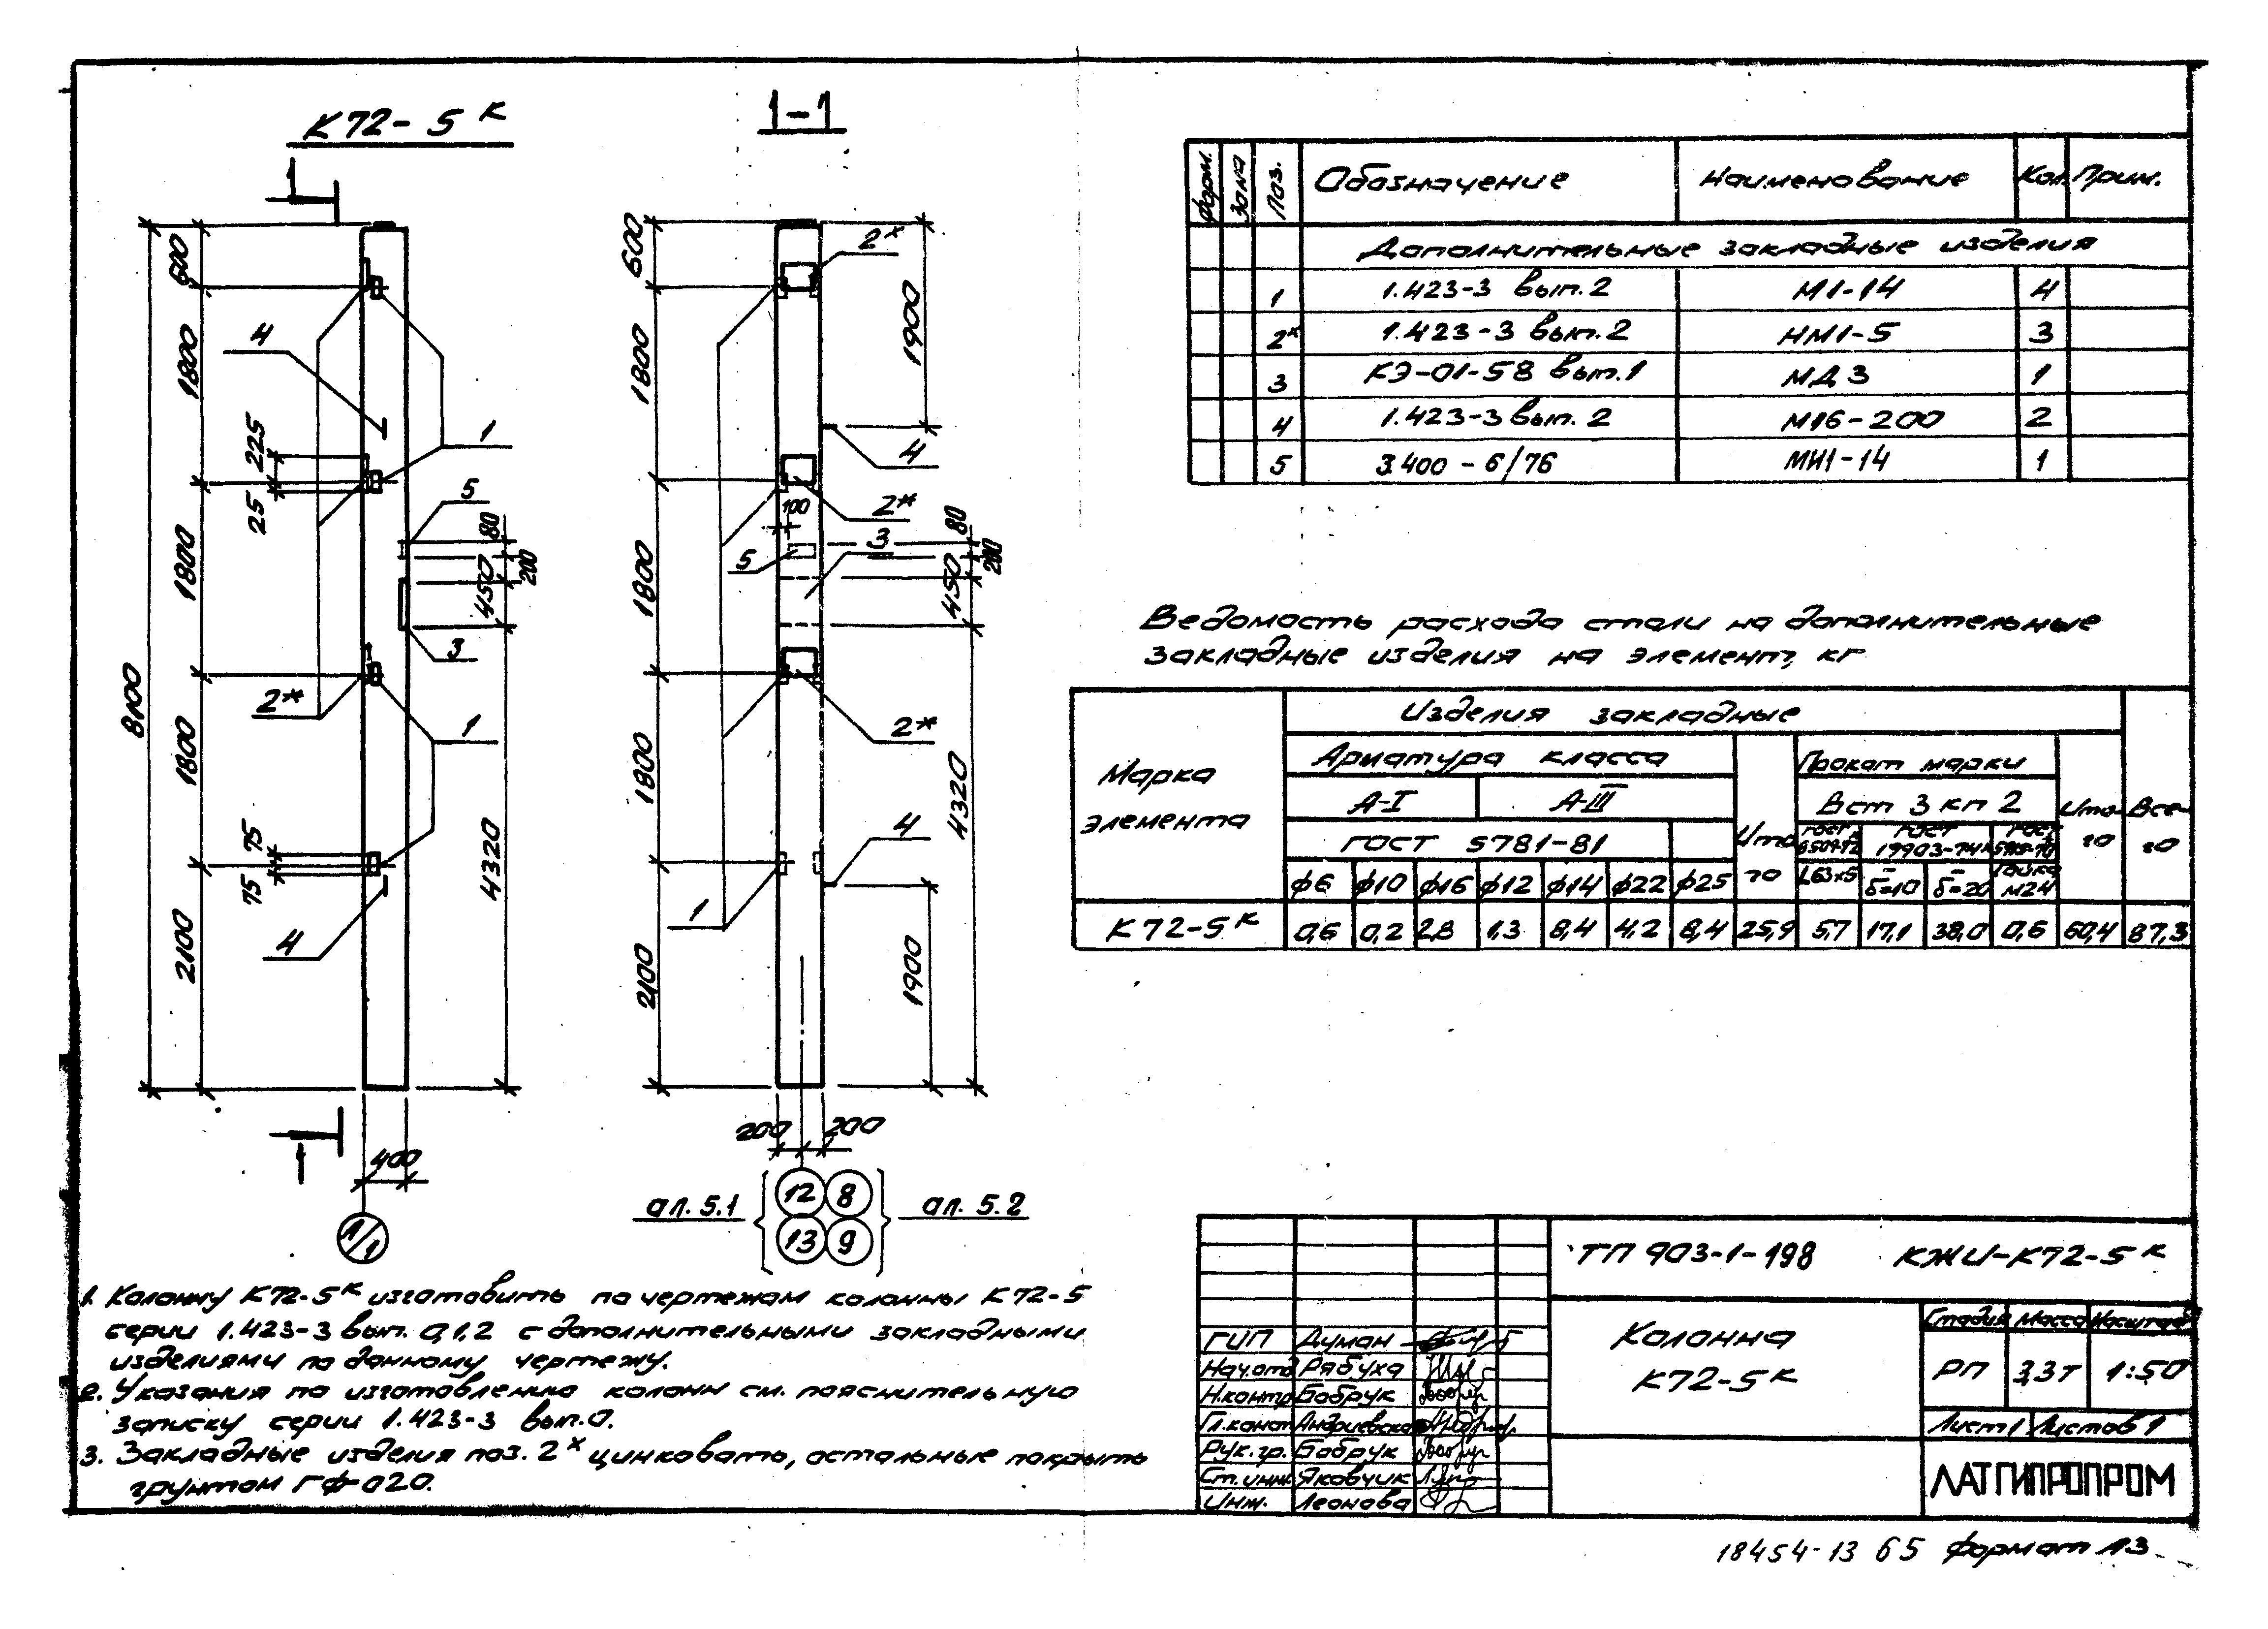 К72-5 К
1-1
1
600
1800
225
25
1800
1800
75
75
2100
8100
4
2*
4
1
5
3
1
80
200
450
4320
400
1
1/1
600
1800
1800
1800
2100
2*
1900
4
2*
100
5
3
80
200
450
2*
4
1
4320
1900
200 200
ал. 5.1
12 8
13 9
ал. 5.2
1. Колонну К72-5К изготовить по чертежам колонны К72-5
серии 1.423-3 вып. 0,1,2 с дополнительными закладными
изделиями по данному чертежу.
2. Указания по изготовлению колонн см. пояснительную
записку серии 1.423-3 вып.0.
3. Закладные изделия поз. 2х цинковать, остальные покрыть
грунтом ГФ-020.
Форм. Зона Поз. Обозначение Наименование Кол. Прим.
Дополнительные закладные изделия
1 1.423-3 вып. 2 М1-14 4
2х 1.423-3 вып. 2 НМ1-5 3
3 КЭ-01-58 вып.1 МД 3 1
4 1.423-3 вып. 2 М16-200 2
5 3.400-6/76 МИ1-14 1
Ведомость расхода стали на дополнительные
закладные изделия на элемент, кг
Марка элемента
Изделия закладные
Арматура класса
Прокат марки
А-I А-III
Вст 3 кп 2
Ито-го
Все-го
ГОСТ 5781-81
Итого
ГОСТ 8509-72 ГОСТ 19903-74 ГОСТ 5915-70
ф6 ф10 ф16 ф12 ф14 ф22 ф25 L63х5 δ=10 δ=20 Гайка М24
К72-5К 0,6 0,2 2,8 1,3 8,4 4,2 8,4 25,9 5,7 17,1 38,0 0,6 60,4 87,3
ТП 903-1-198 КЖИ-К72-5К
Колонна
К72-5К
Стадия Масса Масштаб
РП 3,3т 1:50
Лист 1 Листов 1
ЛАТГИПРОПРОМ
ГИП Думан
Нач.отд. Рябуха
Н.контр. Бобрук
Гл.конст. Андриевская
Рук. гр. Бобрук
Ст. инж. Яковчик
Инж. Леонова
18454-13 65 Формат А3